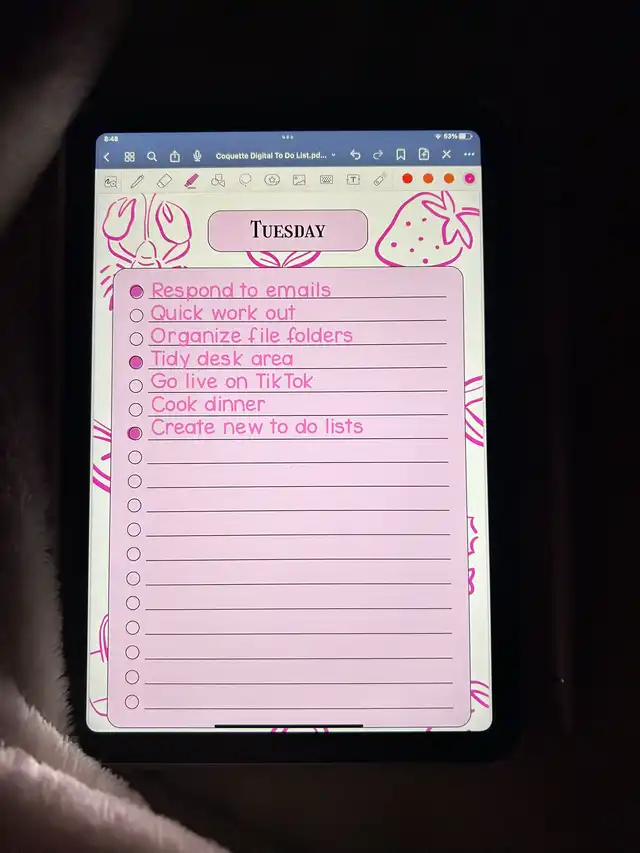 8:48
53%
Coquette Digital To Do List.pd...
TUESDAY
Respond to emails
Quick work out
Organize file folders
Tidy desk area
Go live on TikTok
Cook dinner
Create new to do lists